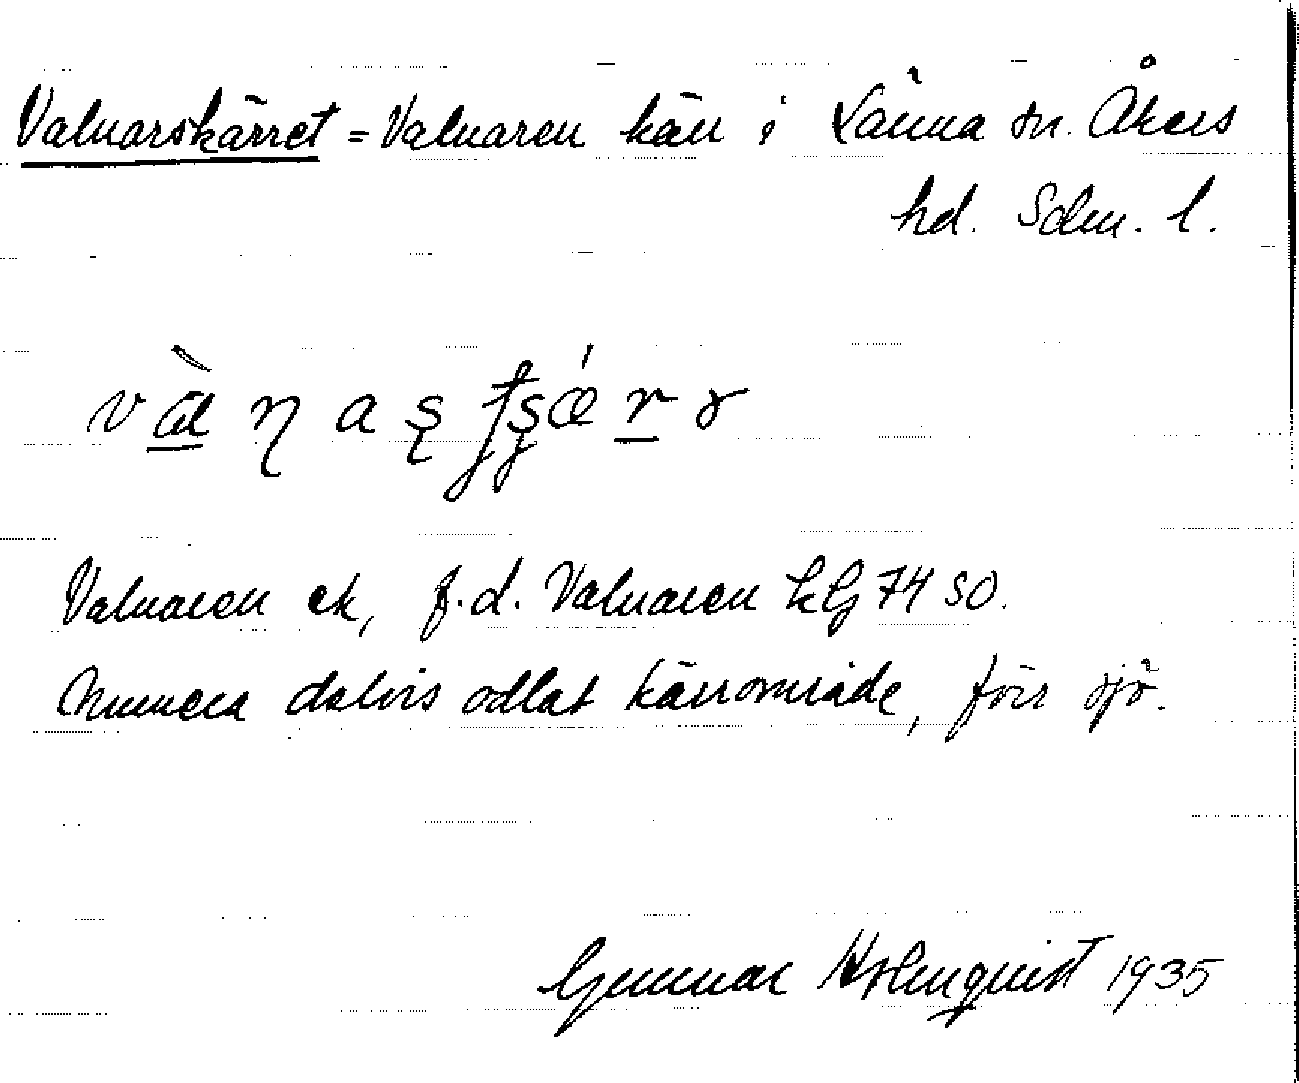 Valnarskärret = Valnaren kärr i Länna sn. Åkers
hd. Sdm. l.
Valnaren ek, f.d. Valnaren LG 74 SO.
Numera delvis odlat kärrområde, förr sjö.
Gunnar Holmquist 1935